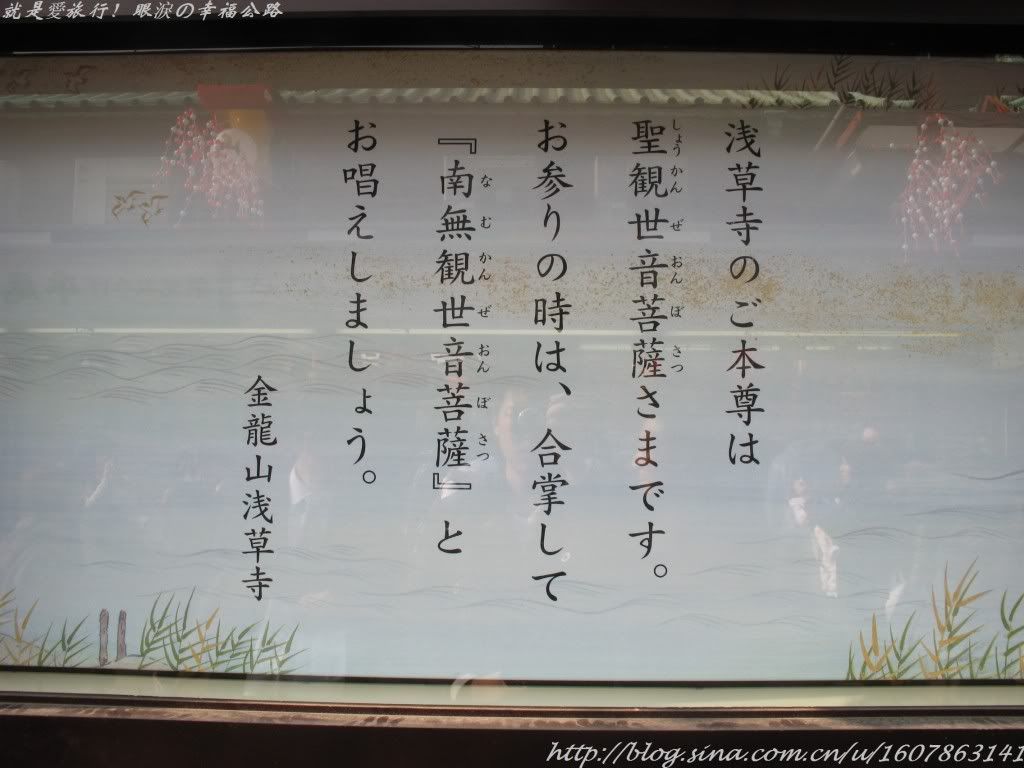 就是愛旅行! 眼淚の幸福公路
浅草寺のご本尊は
聖観世音菩薩さまです。
しょうかんぜおんぼさつ
お参りの時は、合掌して
『南無観世音菩薩』と
なむかんぜおんぼさつ
お唱えしましょう。
金龍山浅草寺
http://blog.sina.com.cn/u/1607863141